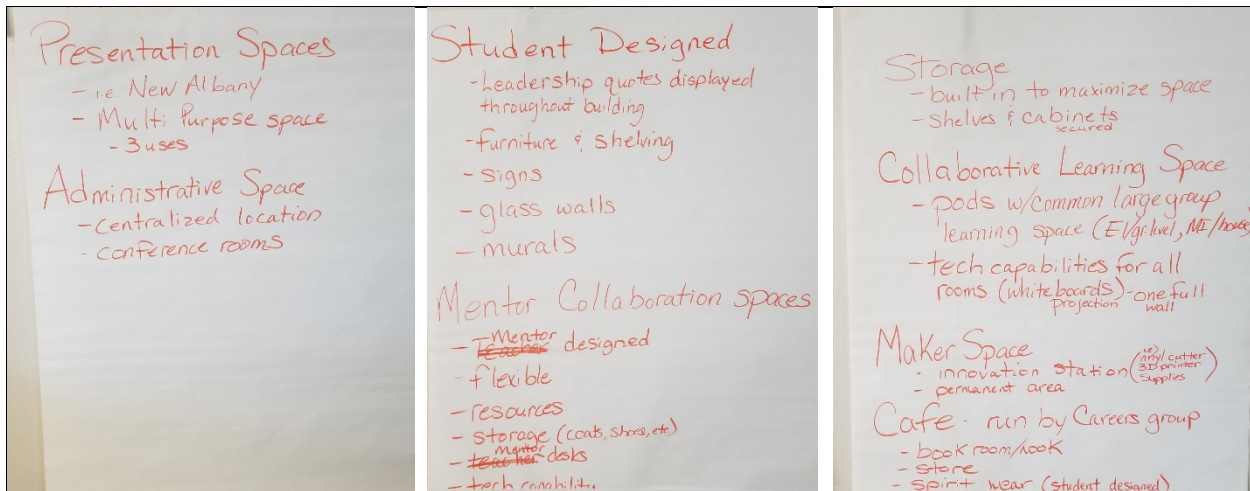 Presentation Spaces
- i.e. New Albany
- Multi Purpose space
- 3 uses
Administrative Space
- centralized location
- conference rooms
Student Designed
- Leadership quotes displayed
throughout building
- furniture & shelving
- signs
- glass walls
- murals
Mentor Collaboration spaces
- Mentor designed
- flexible
- resources
- storage (coats, shoes, etc)
- mentor desks
- tech capability
Storage
- built in to maximize space
- shelves & cabinets
secured
Collaborative Learning Space
- pods w/common large group
learning space (El/gr.level, MI/house)
- tech capabilities for all
rooms (whiteboards) - one full
projection wall
Maker Space
- innovation station (ie) vinyl cutter
3D printer
supplies)
- permanent area
Cafe - run by Careers group
- book room/nook
- store
- spirit wear (student designed)